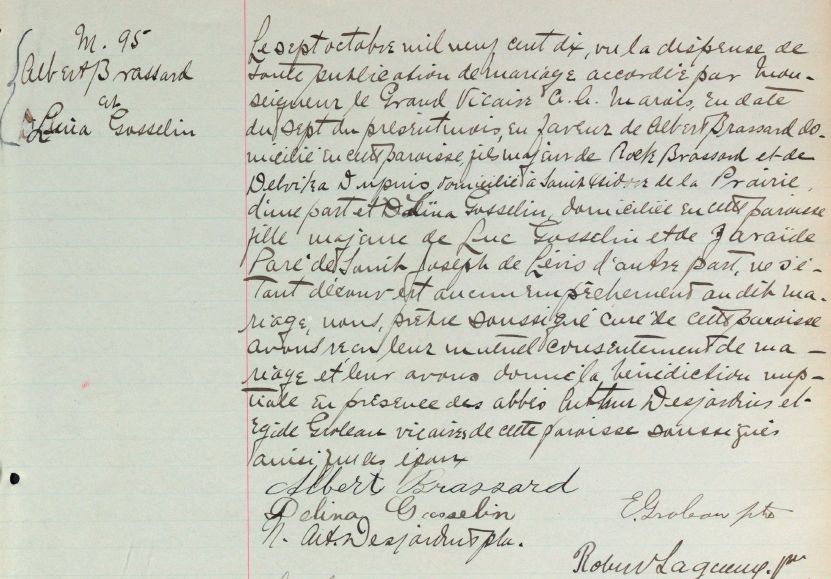 M. 95
Albert Brassard
et
Délina Gosselin
Le sept octobre mil neuf cent dix, vu la dispense de
toute publication de mariage accordée par Mon-
seigneur le Grand Vicaire C. A. Marois, en date
du sept du présent mois, en faveur de Albert Brassard do-
micilié en cette paroisse, fils majeur de Rock Brassard et de
Delvika Dupuis, domiciliés à Saint Isidore de la Prairie,
d'une part et Délina Gosselin, domiciliée en cette paroisse
fille majeure de Luc Gosselin et de Zaraïde
Paré de Saint Joseph de Lévis d'autre part, ne s'é-
tant découvert aucun empêchement au dit ma-
riage, nous, prêtre soussigné curé de cette paroisse
avons reçu leur mutuel consentement de ma-
riage et leur avons donné la bénédiction nup-
tiale en présence des abbés Arthur Desjardins et
Egide Groleau vicaires de cette paroisse soussignés
ainsi que les époux
Albert Brassard
Delina Gosselin
E. Groleau ptre
N. Art. Desjardins ptre.
Lagueux, ptre